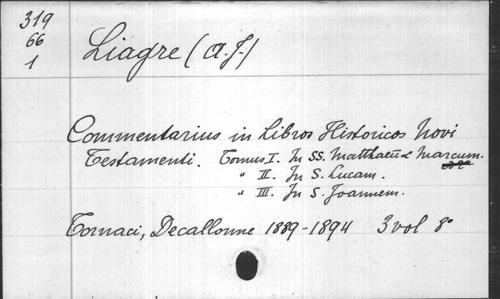 319
66
1
Liagre (A.J.)
Commentarius in Libros Historicos Novi
Testamenti. Tomus I. In SS. Matthaeū & Marcum.
" II. In S. Lucam.
" III. In S. Joannem.
Tornaci, Decallonne 1889-1894 3 vol 8°